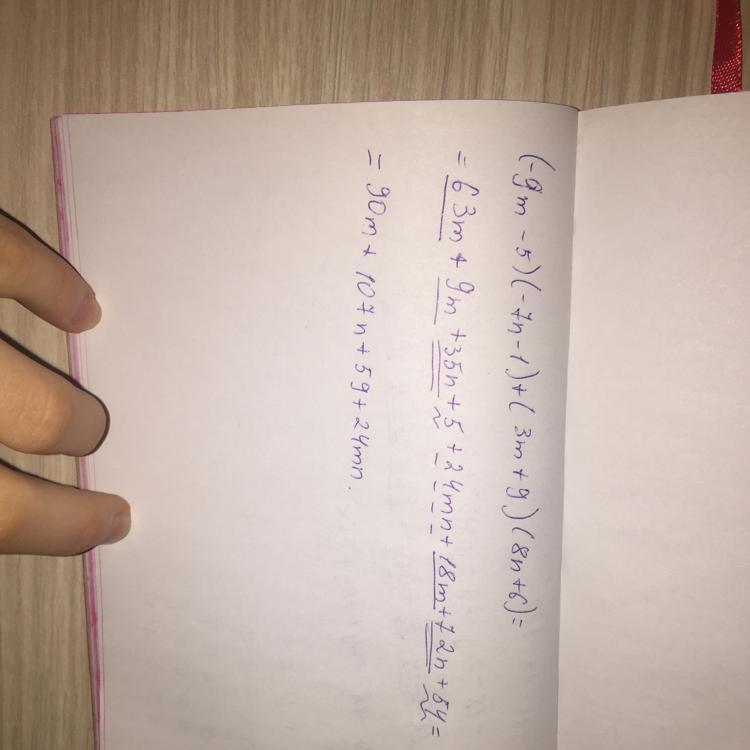 (-9m - 5)(-7n-1)+(3m+9)(8n+6)=
= 63m + 9m + 35n + 5 + 24mn + 18m + 72n + 54 =
= 90m + 107n + 59 + 24mn.